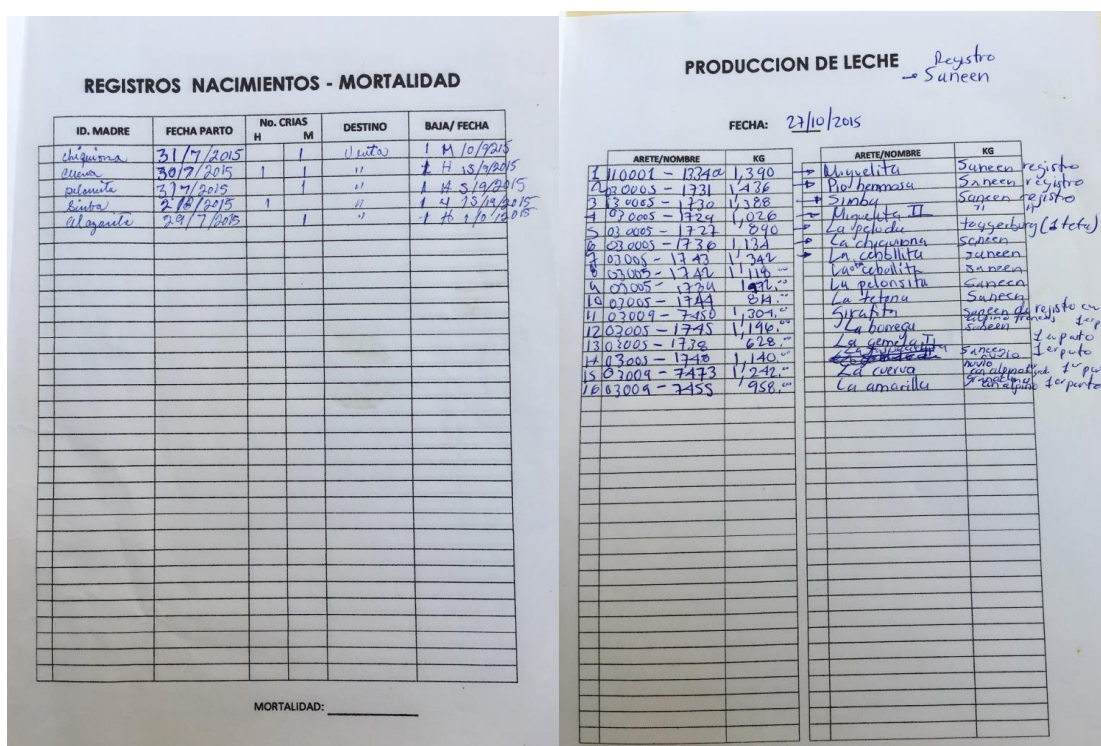 REGISTROS NACIMIENTOS - MORTALIDAD
ID. MADRE FECHA PARTO No. CRIAS H M DESTINO BAJA/ FECHA
chiquiona 31/7/2015 1 Venta 1 M 10/9/215
Cuerva 30/7/2015 1 1 " 1 H 15/9/2015
pelonsita 31/7/2015 1 " 1 H 5/9/2015
Simba 2/8/2015 1 " 1 H
29/7/2015 1 " 1 H
MORTALIDAD:
PRODUCCION DE LECHE Registro
Saneen
FECHA: 27/10/2015
ARETE/NOMBRE KG ARETE/NOMBRE KG
1 110001 - 1,390 Miquelita Saneen registro
2 030005 - 1731 1,436 Pio hermosa Saneen registro
3 030005 - 1730 1,388 Simba Saneen registro
4 030005 - 1729 1,026 Miquelita II " "
5 030005 - 1727 890 La peluda toggenburg (1 teta)
6 030005 - 1736 1,134 La chiquiona saneen
7 03005 - 1743 1,342 La cebollita saneen
8 03005 - 1742 1,118.00 La cebollita saneen
9 03005 - 1734 La pelonsita Saneen
10 03005 - 1744 814.00 La tetona Saneen
11 03009 - 7450 1,304.00 Girafita Saneen de registro con
alpino frances 1er
12 03005 - 1745 1,196.00 La borrega saneen
13 03005 - 1738 628.00 La gemela II 1er parto
14 03005 - 1748 1,140.00 Saneen 1er parto
nuvio
15 03009 - 7473 1,242.00 La cuerva nuvio con alpino 1er
16 03009 - 7455 958.00 La amarilla con alpino 1er parto